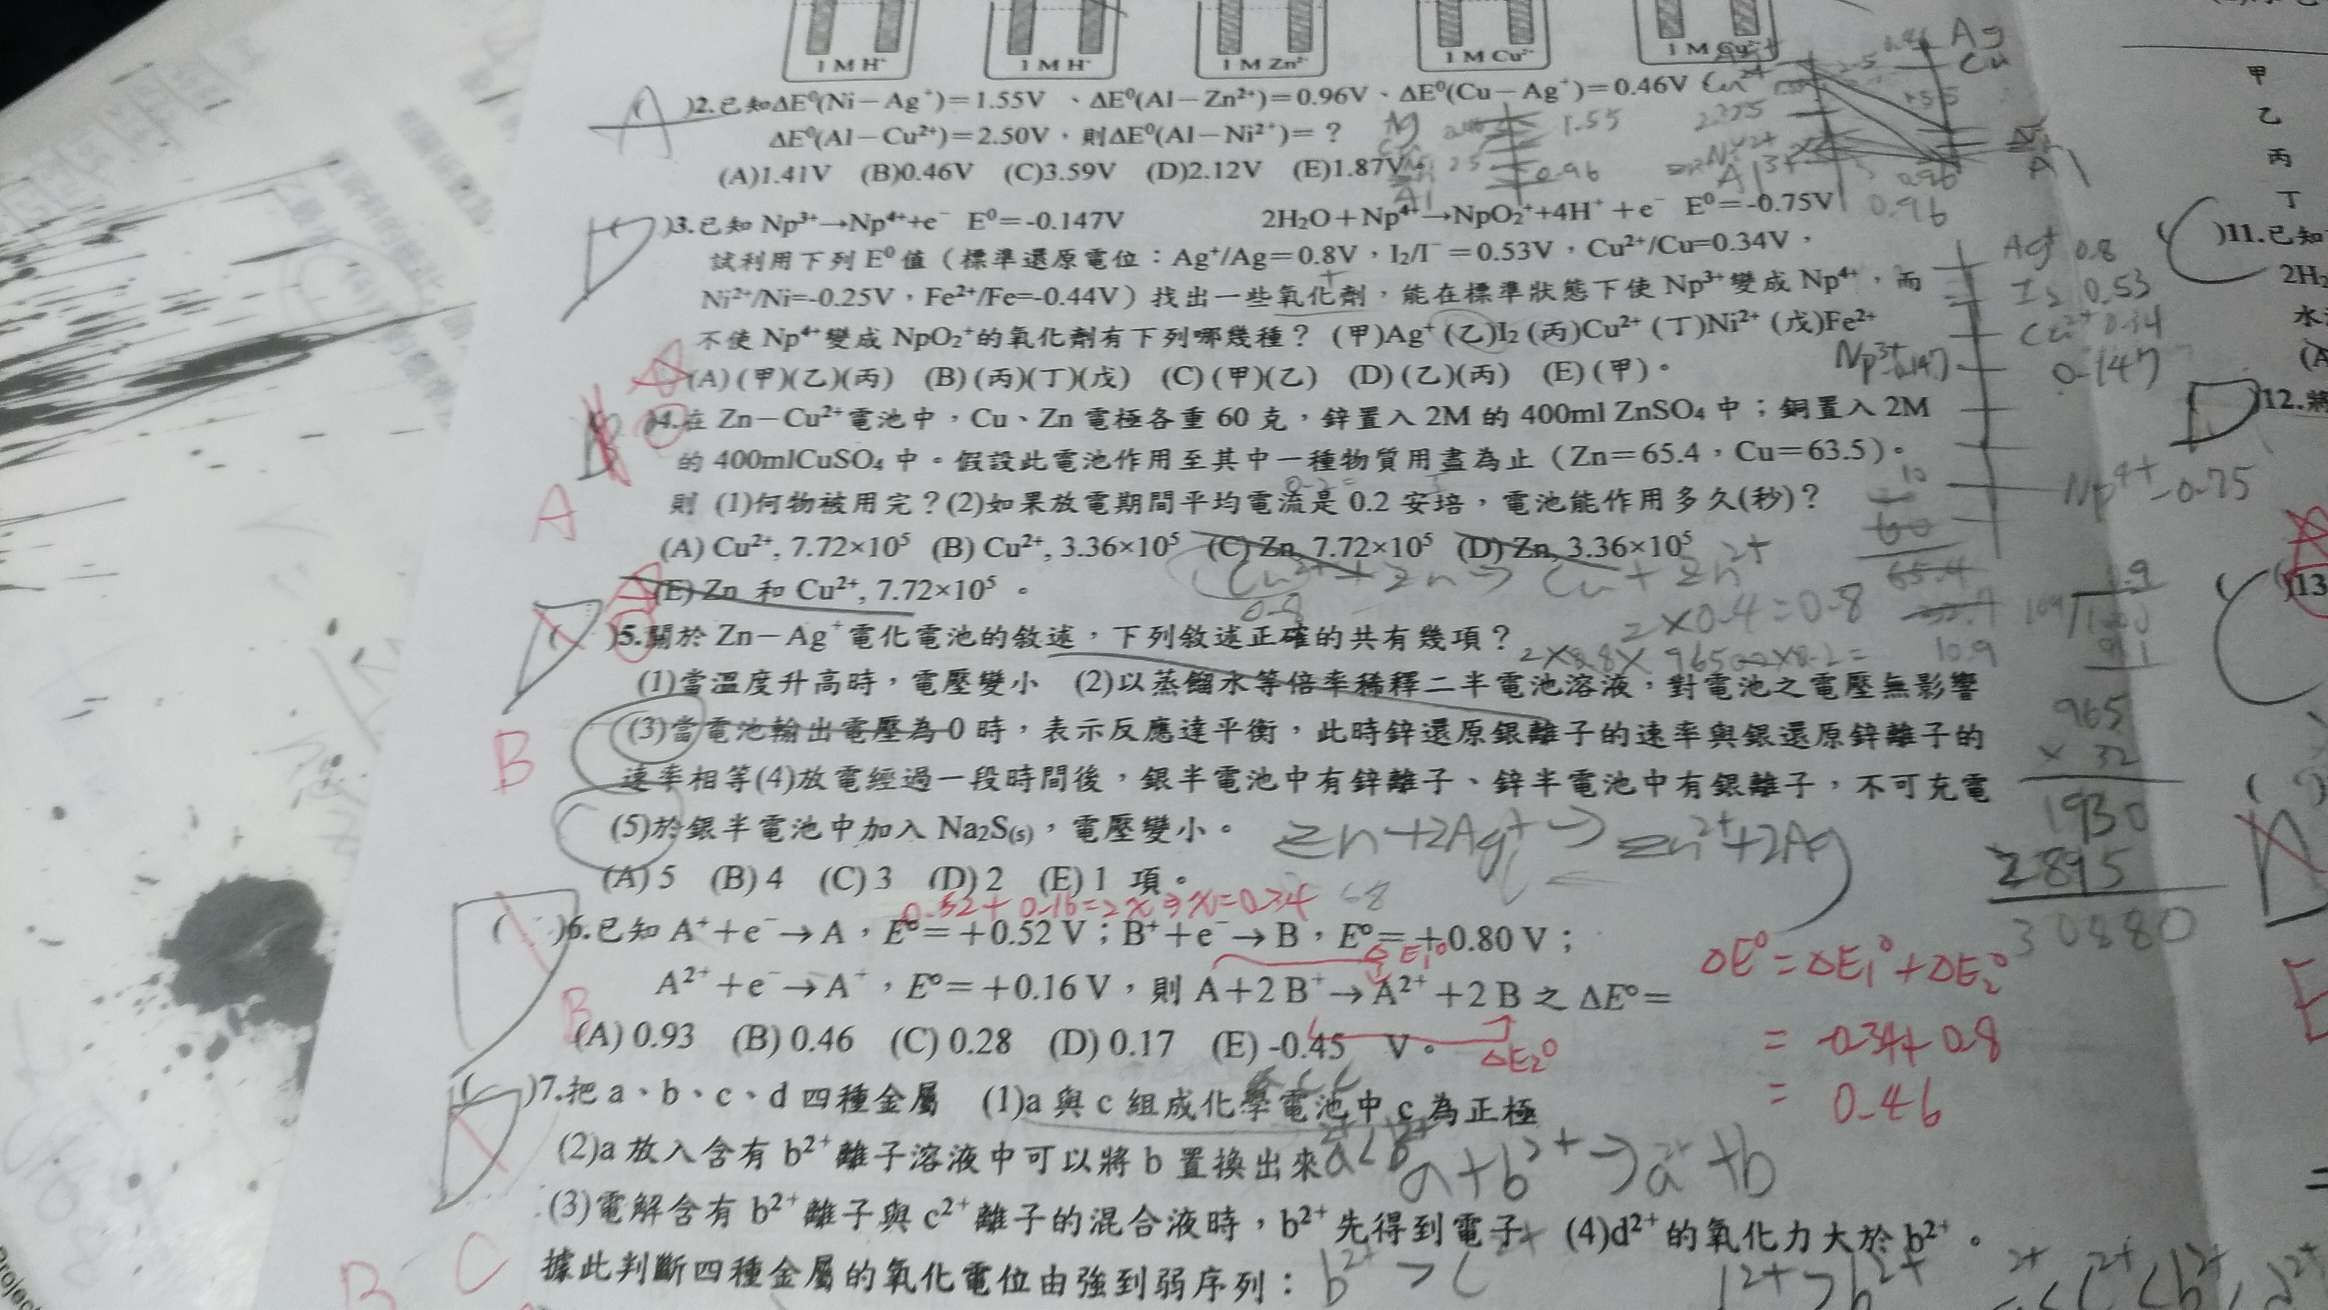 1 M H⁺ 1 M H⁺ 1 M Zn²⁺ 1 M Cu²⁺
A )2.已知ΔE⁰(Ni－Ag⁺)＝1.55V 、ΔE⁰(Al－Zn²⁺)＝0.96V、ΔE⁰(Cu－Ag⁺)＝0.46V
ΔE⁰(Al－Cu²⁺)＝2.50V，則ΔE⁰(Al－Ni²⁺)＝？
(A)1.41V (B)0.46V (C)3.59V (D)2.12V (E)1.87V
D )3.已知 Np³⁺→Np⁴⁺+e⁻ E⁰＝-0.147V 2H₂O＋Np⁴⁺→NpO₂⁺+4H⁺＋e⁻ E⁰＝-0.75V
試利用下列 E⁰值（標準還原電位：Ag⁺/Ag＝0.8V，I₂/I⁻＝0.53V，Cu²⁺/Cu=0.34V，
Ni²⁺/Ni=-0.25V，Fe²⁺/Fe=-0.44V）找出一些氧化劑，能在標準狀態下使 Np³⁺變成 Np⁴⁺，而
不使 Np⁴⁺變成 NpO₂⁺的氧化劑有下列哪幾種？ (甲)Ag⁺ (乙)I₂ (丙)Cu²⁺ (丁)Ni²⁺ (戊)Fe²⁺
(A) (甲)(乙)(丙) (B) (丙)(丁)(戊) (C) (甲)(乙) (D) (乙)(丙) (E) (甲)。
)4.在 Zn－Cu²⁺電池中，Cu、Zn 電極各重 60 克，鋅置入 2M 的 400ml ZnSO₄ 中；銅置入 2M
的 400mlCuSO₄ 中。假設此電池作用至其中一種物質用盡為止（Zn＝65.4，Cu＝63.5）。
A 則 (1)何物被用完？(2)如果放電期間平均電流是 0.2 安培，電池能作用多久(秒)？
(A) Cu²⁺, 7.72×10⁵ (B) Cu²⁺, 3.36×10⁵ (C) Zn, 7.72×10⁵ (D) Zn, 3.36×10⁵
(E) Zn 和 Cu²⁺, 7.72×10⁵ 。
Cu²⁺ + Zn → Cu + Zn²⁺
0.8
2×0.4=0.8
( )5.關於 Zn－Ag⁺電化電池的敘述，下列敘述正確的共有幾項？
(1)當溫度升高時，電壓變小 (2)以蒸餾水等倍率稀釋二半電池溶液，對電池之電壓無影響
B (3)當電池輸出電壓為 0 時，表示反應達平衡，此時鋅還原銀離子的速率與銀還原鋅離子的
速率相等(4)放電經過一段時間後，銀半電池中有鋅離子、鋅半電池中有銀離子，不可充電
(5)於銀半電池中加入 Na₂S₍ₛ₎，電壓變小。
Zn+2Ag⁺→Zn²⁺+2Ag
(A) 5 (B) 4 (C) 3 (D) 2 (E) 1 項。
0.52+0.16=2x⇒x=0.34
( )6.已知 A⁺＋e⁻→A，E⁰＝+0.52 V；B⁺＋e⁻→B，E⁰＝+0.80 V；
A²⁺＋e⁻→A⁺，E⁰＝+0.16 V，則 A＋2 B⁺→A²⁺＋2 B 之 ΔE⁰＝
B (A) 0.93 (B) 0.46 (C) 0.28 (D) 0.17 (E) -0.45 V。
ΔE₁⁰
ΔE₂⁰
ΔE⁰=ΔE₁⁰+ΔE₂⁰
= -0.34+0.8
= 0.46
( )7.把 a、b、c、d 四種金屬 (1)a 與 c 組成化學電池中 c 為正極
(2)a 放入含有 b²⁺離子溶液中可以將 b 置換出來
a+b²⁺→a²⁺+b
(3)電解含有 b²⁺離子與 c²⁺離子的混合液時，b²⁺先得到電子 (4)d²⁺的氧化力大於 b²⁺。
B C 據此判斷四種金屬的氧化電位由強到弱序列：
Ag⁺ 0.8
I₂ 0.53
Cu²⁺ 0.34
0.147
Np⁴⁺ -0.75
965
× 32
1930
2895
30880
甲
乙
丙
丁
)11.已知
2H₂
)12.將